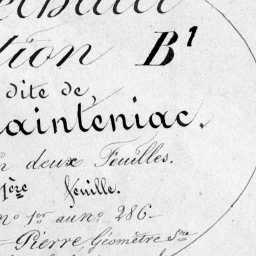 tion B¹
dite de
ainteniac.
deux Feuilles.
1ère feuille.
n° 1er au n° 286.
Pierre Géomètre